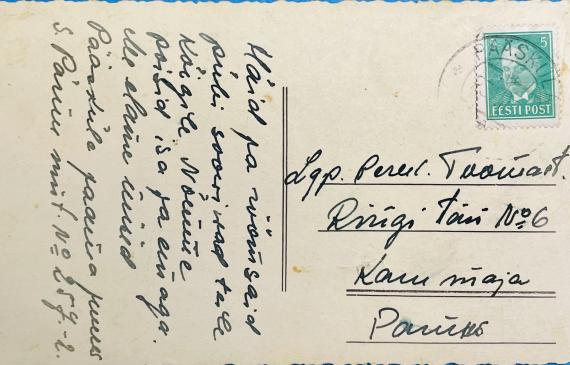 Häid ja rõõmsaid
pühi soovivad teile
Kõigile Nõmme
poisid isa ja emaga.
Me elame nüüd
Pääsküla jaama juures
S. Pärnu mnt. No 257-2.
PÄÄSK
5
EESTI POST
Lgp. Perek. Toomast.
Ringi Tän No 6
maja
Pärnus